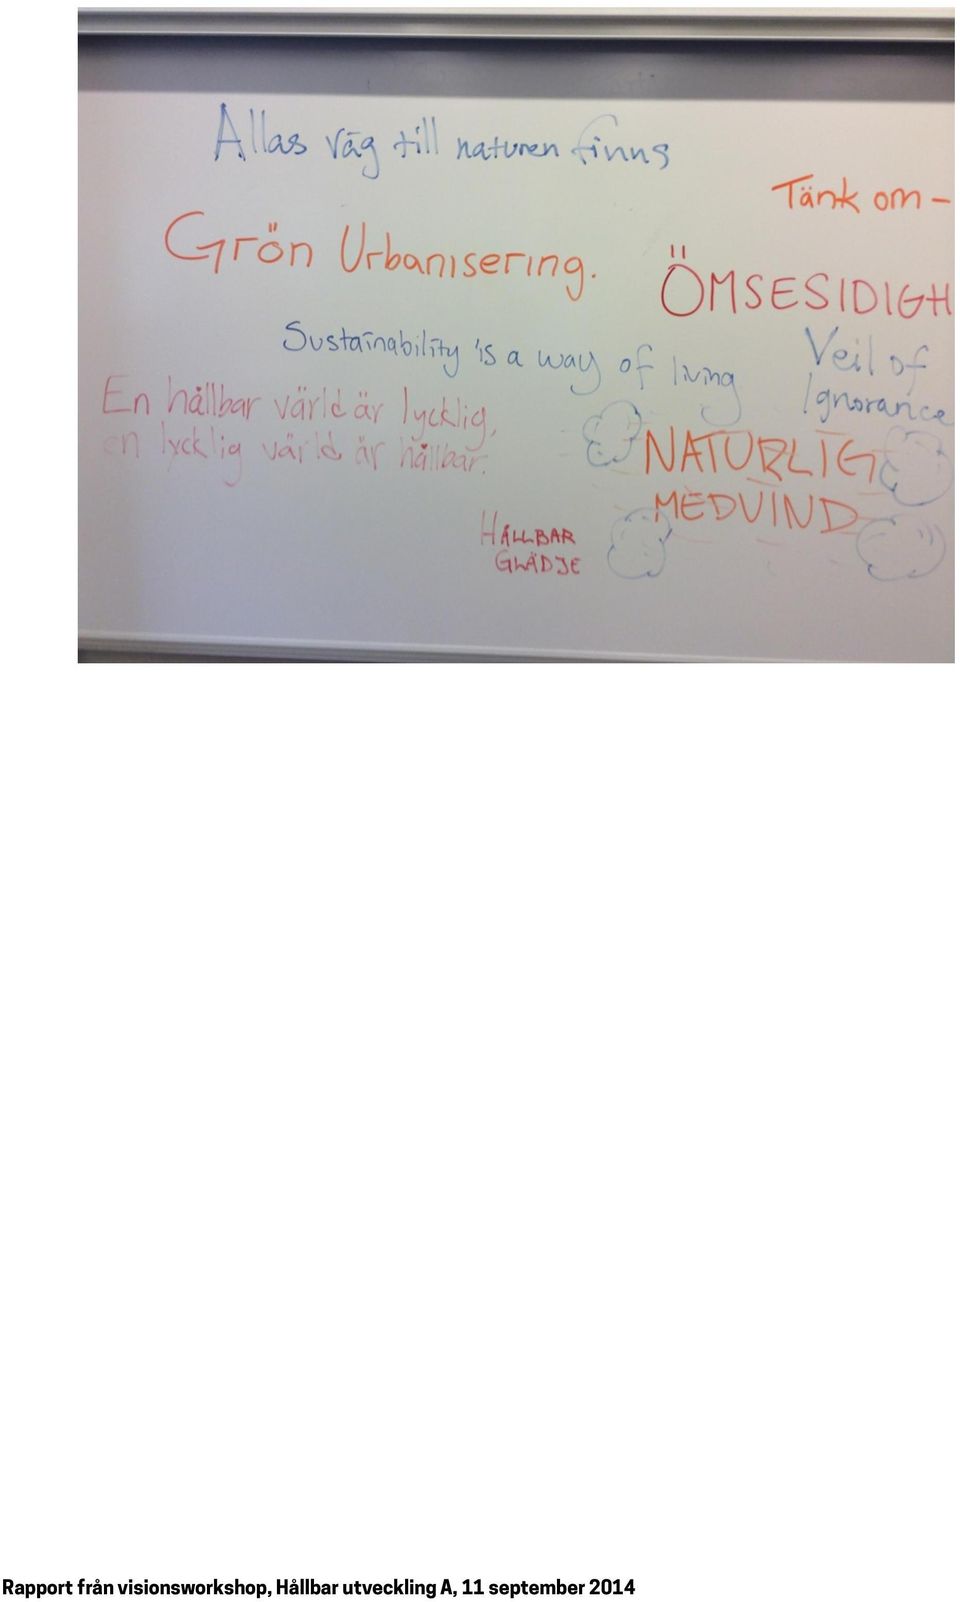 Allas väg till naturen finns
Tänk om -
Grön Urbanisering.
ÖMSESIDIGH
Sustainability is a way of living
Veil of
Ignorance
En hållbar värld är lycklig,
en lycklig värld är hållbar.
NATURLIG
MEDVIND
HÅLLBAR
GLÄDJE
Rapport från visionsworkshop, Hållbar utveckling A, 11 september 2014